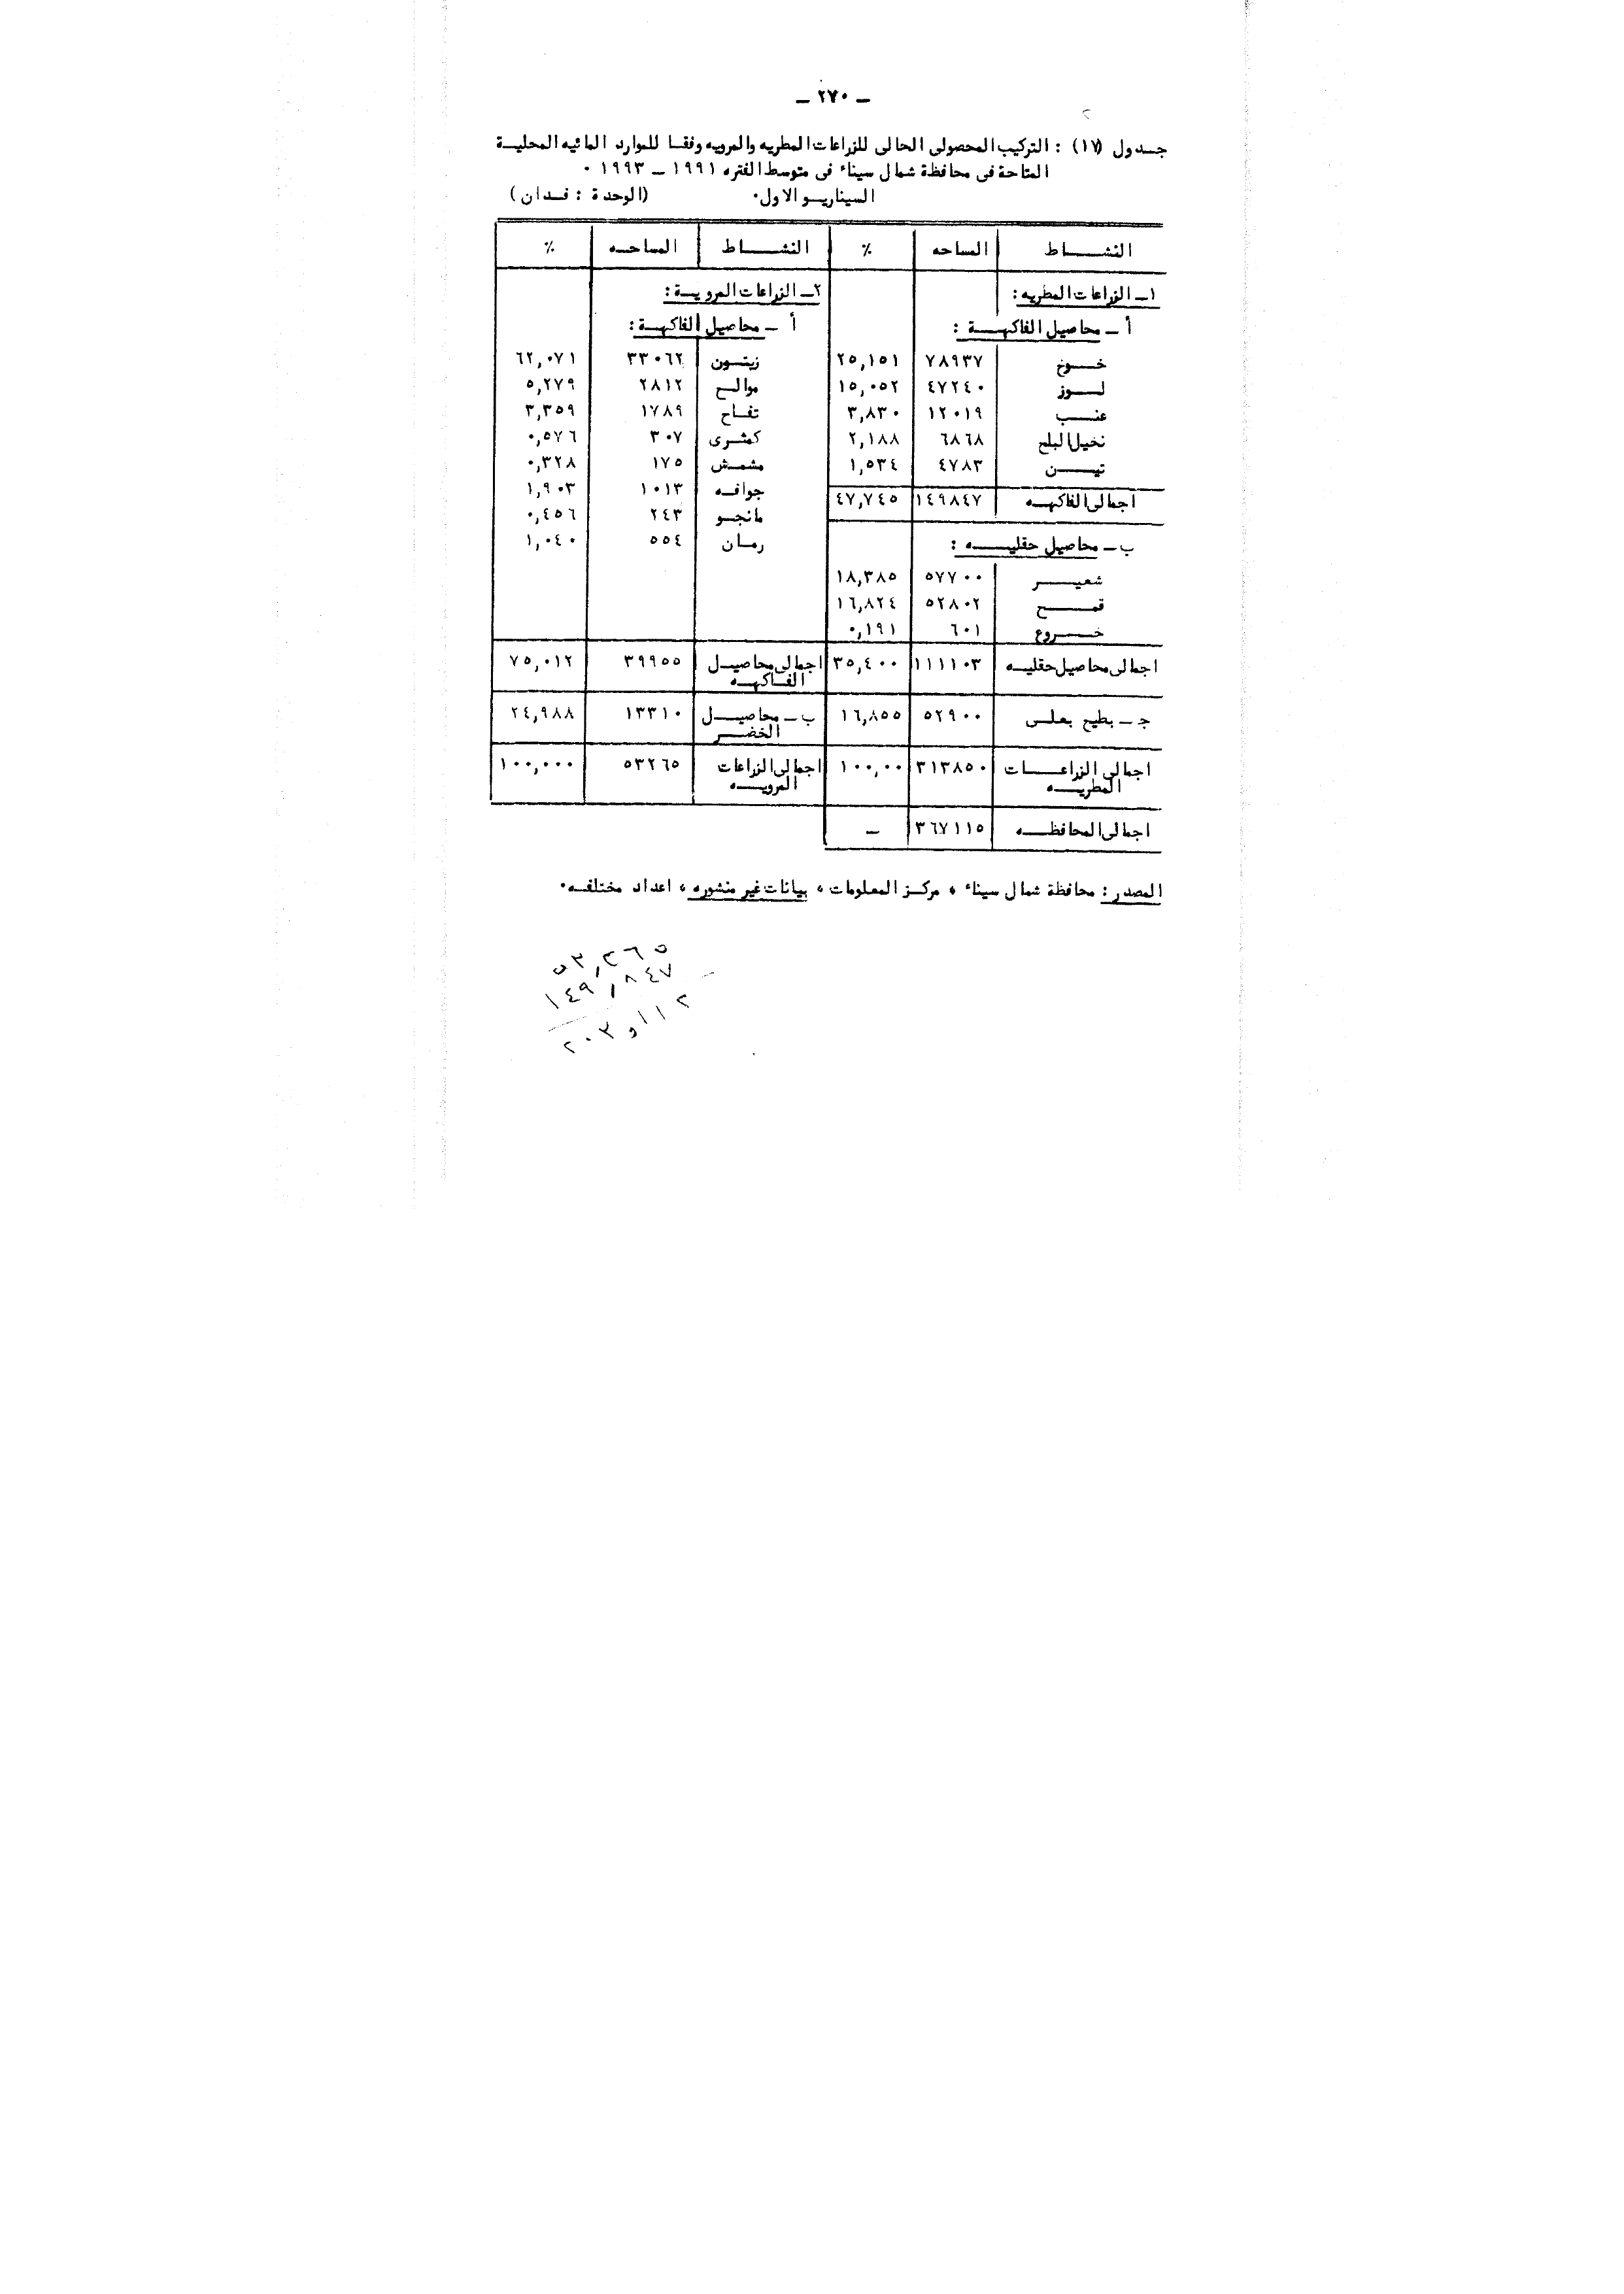 – ٢٧٠ –
جدول (١٧) : التركيب المحصولى الحالى للزراعات المطريه والمرويه وفقا للموارد المائيه المحلية
المتاحة فى محافظة شمال سيناء فى متوسط الفتره ١٩٩١ – ١٩٩٣ ٠
السيناريو الاول٠ (الوحدة : فدان )
النشاط المساحه % النشاط المساحه %
١– الزراعات المطريه : ٢– الزراعات المروية :
أ – محاصيل الفاكهة : أ – محاصيل الفاكهة :
خوخ ٧٨٩٣٧ ٢٥,١٥١ زيتون ٣٣٠٦٢ ٦٢,٠٧١
لوز ٤٧٢٤٠ ١٥,٠٥٢ موالح ٢٨١٢ ٥,٢٧٩
عنب ١٢٠١٩ ٣,٨٣٠ تفاح ١٧٨٩ ٣,٣٥٩
نخيل البلح ٦٨٦٨ ٢,١٨٨ كمثرى ٣٠٧ ٠,٥٧٦
تين ٤٧٨٣ ١,٥٣٤ مشمش ١٧٥ ٠,٣٢٨
جوافه ١٠١٣ ١,٩٠٣
اجمالى الفاكهه ١٤٩٨٤٧ ٤٧,٧٤٥ مانجو ٢٤٣ ٠,٤٥٦
ب – محاصيل حقليه : رمان ٥٥٤ ١,٠٤٠
شعير ٥٧٧٠٠ ١٨,٣٨٥
قمح ٥٢٨٠٢ ١٦,٨٢٤
خروع ٦٠١ ٠,١٩١
اجمالى محاصيل حقليه ١١١١٠٣ ٣٥,٤٠٠ اجمالى محاصيل ٣٩٩٥٥ ٧٥,٠١٢
الفاكهه
ج – بطيخ بعلى ٥٢٩٠٠ ١٦,٨٥٥ ب – محاصيل ١٣٣١٠ ٢٤,٩٨٨
الخضر
اجمالى الزراعات ٣١٣٨٥٠ ١٠٠,٠٠ اجمالى الزراعات ٥٣٢٦٥ ١٠٠,٠٠٠
المطريه المرويه
اجمالى المحافظه ٣٦٧١١٥ –
المصدر : محافظة شمال سيناء ، مركز المعلومات ، بيانات غير منشوره ، اعداد مختلفه٠
٥٣,٢٦٥
١٤٩,٨٤٧
٢٠٣و١١٢